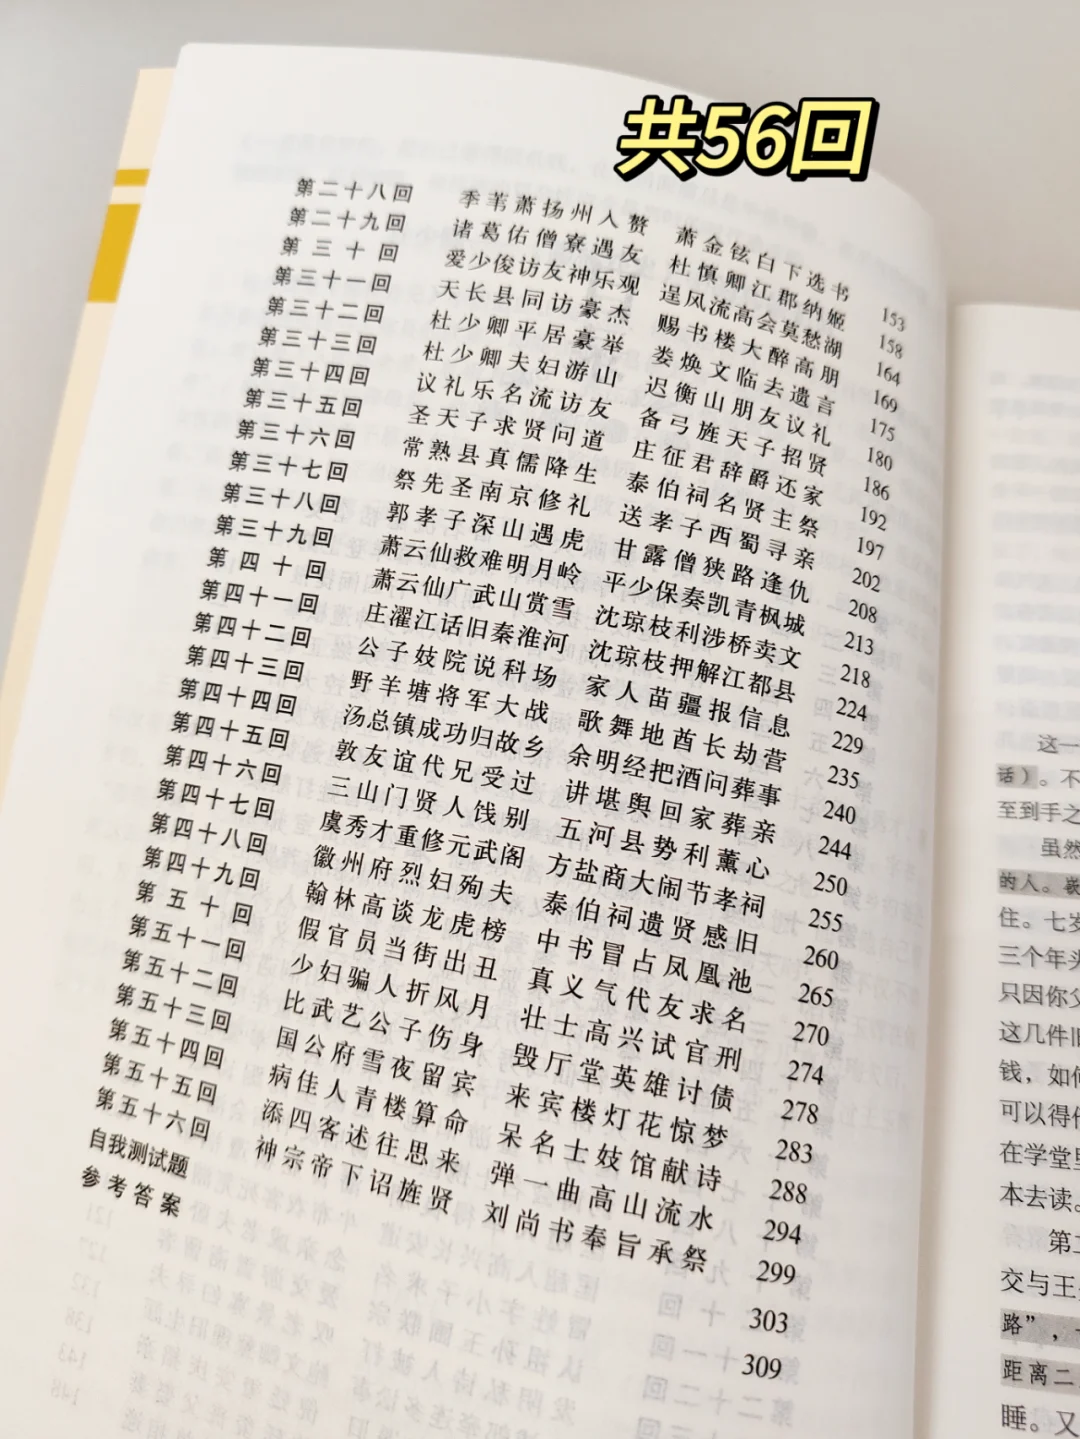 共56回
第二十八回 季苇萧扬州入赘 萧金铉白下选书 153
第二十九回 诸葛佑僧寮遇友 杜慎卿江郡纳姬 158
第三十回 爱少俊访友神乐观 逞风流高会莫愁湖 164
第三十一回 天长县同访豪杰 赐书楼大醉高朋 169
第三十二回 杜少卿平居豪举 娄焕文临去遗言 175
第三十三回 杜少卿夫妇游山 迟衡山朋友议礼 180
第三十四回 议礼乐名流访友 备弓旌天子招贤 186
第三十五回 圣天子求贤问道 庄征君辞爵还家 192
第三十六回 常熟县真儒降生 泰伯祠名贤主祭 197
第三十七回 祭先圣南京修礼 送孝子西蜀寻亲 202
第三十八回 郭孝子深山遇虎 甘露僧狭路逢仇 208
第三十九回 萧云仙救难明月岭 平少保奏凯青枫城 213
第四十回 萧云仙广武山赏雪 沈琼枝利涉桥卖文 218
第四十一回 庄濯江话旧秦淮河 沈琼枝押解江都县 224
第四十二回 公子妓院说科场 家人苗疆报信息 229
第四十三回 野羊塘将军大战 歌舞地酋长劫营 235
第四十四回 汤总镇成功归故乡 余明经把酒问葬事 240
第四十五回 敦友谊代兄受过 讲堪舆回家葬亲 244
第四十六回 三山门贤人饯别 五河县势利薰心 250
第四十七回 虞秀才重修元武阁 方盐商大闹节孝祠 255
第四十八回 徽州府烈妇殉夫 泰伯祠遗贤感旧 260
第四十九回 翰林高谈龙虎榜 中书冒占凤凰池 265
第五十回 假官员当街出丑 真义气代友求名 270
第五十一回 少妇骗人折风月 壮士高兴试官刑 274
第五十二回 比武艺公子伤身 毁厅堂英雄讨债 278
第五十三回 国公府雪夜留宾 来宾楼灯花惊梦 283
第五十四回 病佳人青楼算命 呆名士妓馆献诗 288
第五十五回 添四客述往思来 弹一曲高山流水 294
第五十六回 神宗帝下诏旌贤 刘尚书奉旨承祭 299
自我测试题 303
参考答案 309
这一
话）。不
至到手之
虽然
的人。
住。七岁
三个年头
只因你父
这几件旧
钱，如何
可以得
在学堂里
本去读。
第二
交与王
路”，
距离二
睡。又